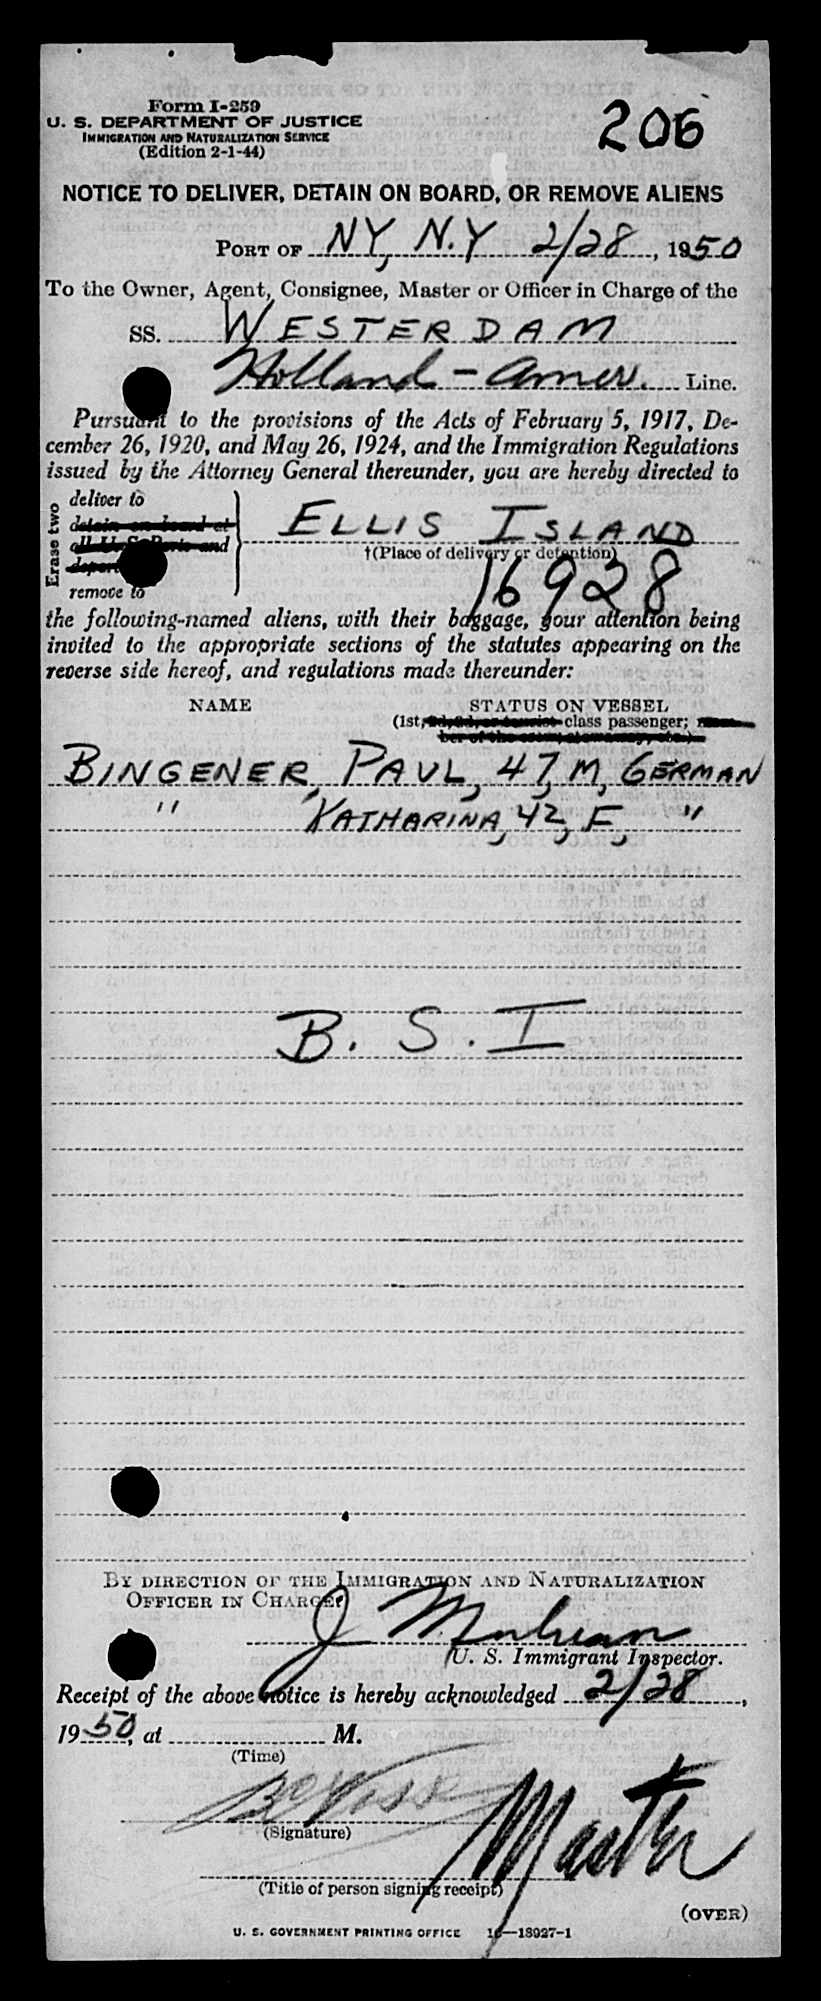 Form I-259
U. S. DEPARTMENT OF JUSTICE
IMMIGRATION AND NATURALIZATION SERVICE
(Edition 2-1-44)
206
NOTICE TO DELIVER, DETAIN ON BOARD, OR REMOVE ALIENS
PORT OF NY, N.Y 2/28, 1950
To the Owner, Agent, Consignee, Master or Officer in Charge of the
SS. WESTERDAM
Holland - Amer. Line.
Pursuant to the provisions of the Acts of February 5, 1917, De-
cember 26, 1920, and May 26, 1924, and the Immigration Regulations
issued by the Attorney General thereunder, you are hereby directed to
Erase two
deliver to
detain on board at
all U. S. Ports and
deport
remove to
ELLIS ISLAND
†(Place of delivery or detention)
16928
the following-named aliens, with their baggage, your attention being
invited to the appropriate sections of the statutes appearing on the
reverse side hereof, and regulations made thereunder:
NAME STATUS ON VESSEL
(1st, 2d, 3d, or tourist class passenger; mem-
ber of the crew, stowaway, etc.)
BINGENER, PAUL, 47, M, GERMAN
" KATHARINA, 42, F, "
B. S. I
BY DIRECTION OF THE IMMIGRATION AND NATURALIZATION
OFFICER IN CHARGE:
J
U. S. Immigrant Inspector.
Receipt of the above notice is hereby acknowledged 2/28,
1950, at M.
(Time)
(Signature)
Master
(Title of person signing receipt)
(OVER)
U. S. GOVERNMENT PRINTING OFFICE 16—18927-1